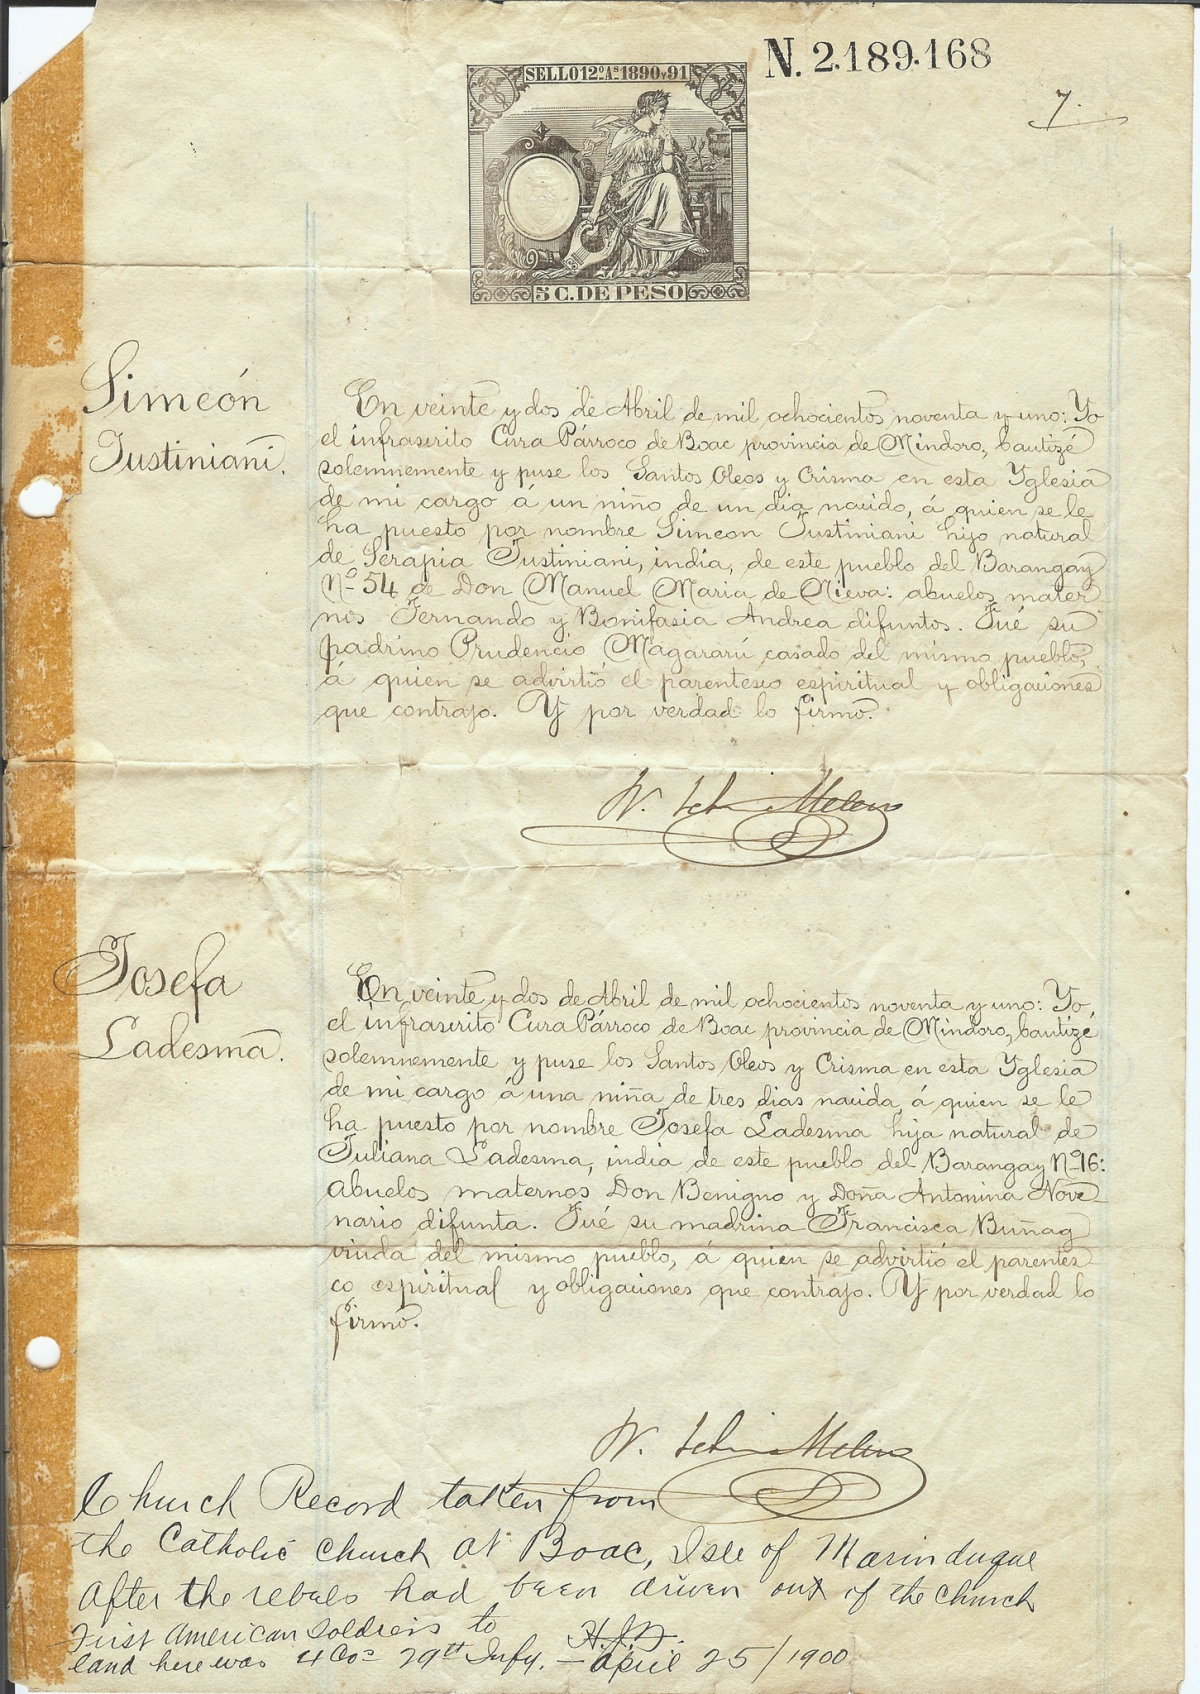 N. 2.189.168
SELLO 12º Aˢ 1890 Y 91
7.
5 C. DE PESO
Simeón
Justiniani.
En veinte y dos de Abril de mil ochocientos noventa y uno: Yo
el infrascrito Cura Párroco de Boac provincia de Mindoro, bautizé
solemnemente y puse los Santos Oleos y Crisma en esta Yglesia
de mi cargo á un niño de un dia nacido, á quien se le
ha puesto por nombre Simeon Justiniani hijo natural
de Serapia Justiniani, india, de este pueblo del Barangay
Nº 54 de Don Manuel Maria de Nieva: abuelos mater
nos Fernando y Bonifasia Andrea difuntos. Fué su
padrino Prudencio Magararú casado del mismo pueblo,
á quien se advirtió el parentesco espiritual y obligaciones
que contrajo. Y por verdad lo firmo.
Josefa
Ladesma.
En veinte y dos de Abril de mil ochocientos noventa y uno: Yo,
el infrascrito Cura Párroco de Boac provincia de Mindoro, bautizé
solemnemente y puse los Santos Oleos y Crisma en esta Yglesia
de mi cargo á una niña de tres dias nacida, á quien se le
ha puesto por nombre Josefa Ladesma hija natural de
Juliana Ladesma, india de este pueblo del Barangay Nº 16:
abuelos maternos Don Benigno y Doña Antonina Nove
nario difunta. Fué su madrina Francisca Buñag
viuda del mismo pueblo, á quien se advirtió el parentes
co espiritual y obligaciones que contrajo. Y por verdad lo
firmo.
Church Record taken from
the Catholic church at Boac, Isle of Marinduque
After the rebels had been driven out of the church
First American Soldiers to
land here was 4 Cos 29th Infy. — April 25/1900